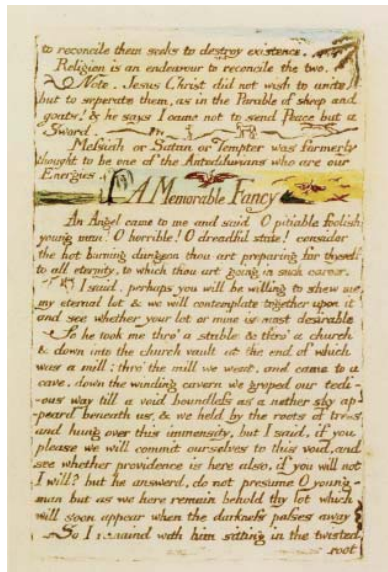 to reconcile them seeks to destroy existence.
Religion is an endeavour to reconcile the two.
Note. Jesus Christ did not wish to unite
but to seperate them, as in the Parable of sheep and
goats! & he says I came not to send Peace but a
Sword.
Messiah or Satan or Tempter was formerly
thought to be one of the Antediluvians who are our
Energies.
A Memorable Fancy
An Angel came to me and said O pitiable foolish
young man! O horrible! O dreadful state! consider
the hot burning dungeon thou art preparing for thyself
to all eternity, to which thou art going in such career.
I said. perhaps you will be willing to shew me
my eternal lot & we will contemplate together upon it
and see whether your lot or mine is most desirable
So he took me thro' a stable & thro' a church
& down into the church vault at the end of which
was a mill: thro' the mill we went, and came to a
cave. down the winding cavern we groped our tedi-
-ous way till a void boundless as a nether sky ap-
-peard beneath us, & we held by the roots of trees
and hung over this immensity, but I said, if you
please we will commit ourselves to this void, and
see whether providence is here also, if you will not
I will? but he answerd, do not presume O young-
-man but as we here remain behold thy lot which
will soon appear when the darkness passes away
So I remaind with him sitting in the twisted
root